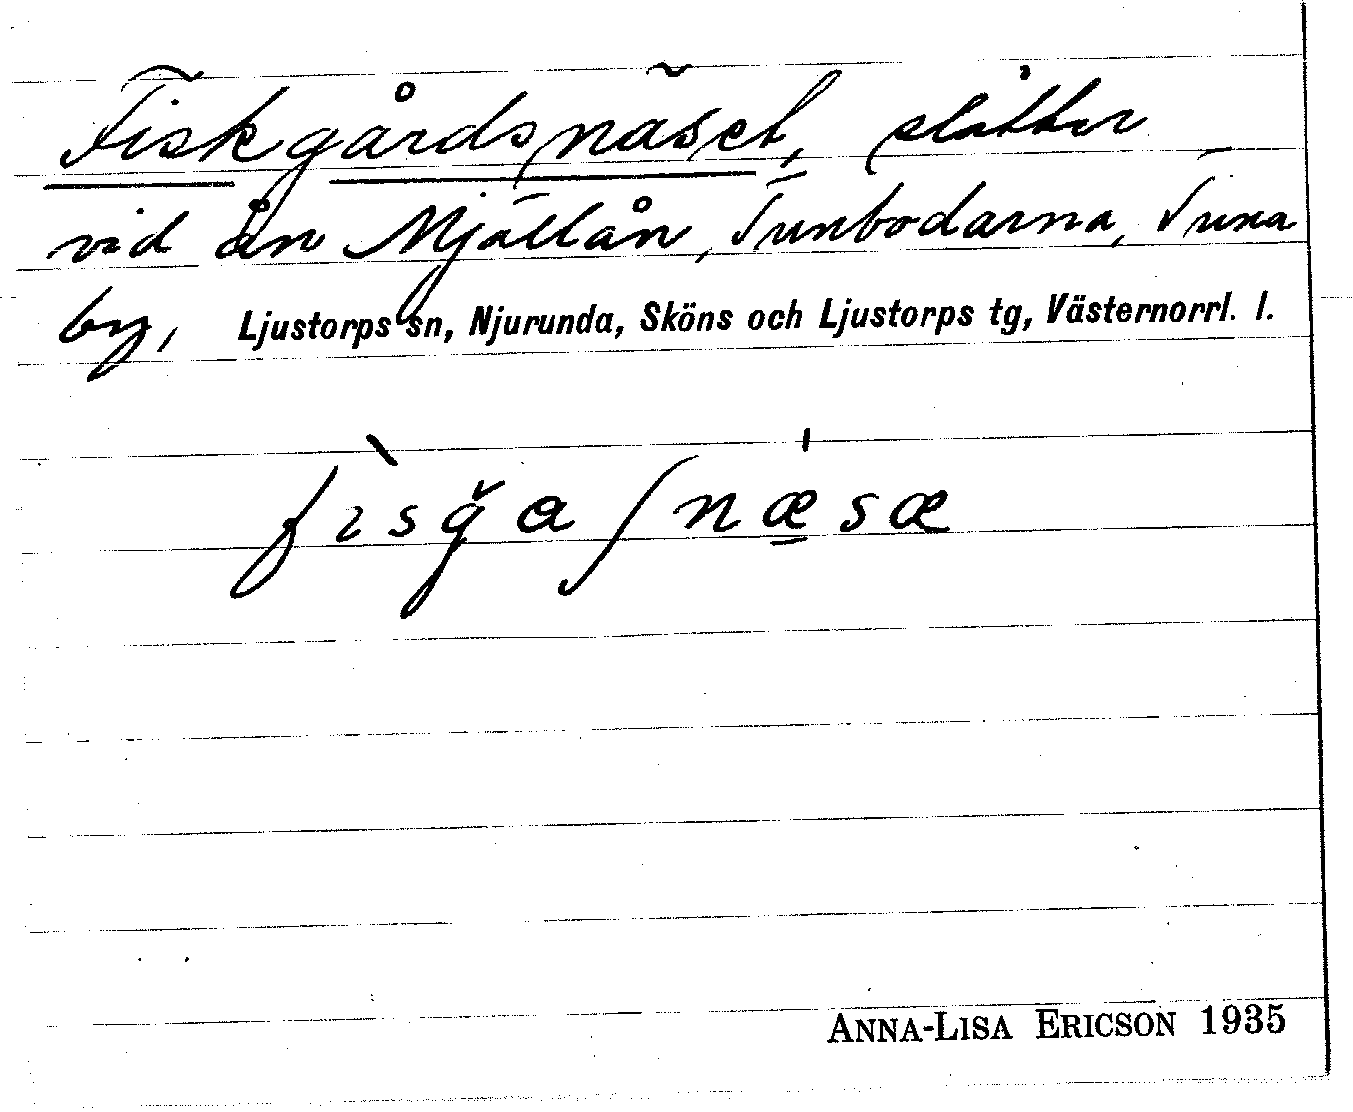 Fiskgårdsnäset, slåtter
vid ån Mjällån, Tunbodarna, Tuna
by, Ljustorps sn, Njurunda, Sköns och Ljustorps tg, Västernorrl. l.
fɪ̀sğaʃnæ̠̍sæ
ANNA-LISA ERICSON 1935